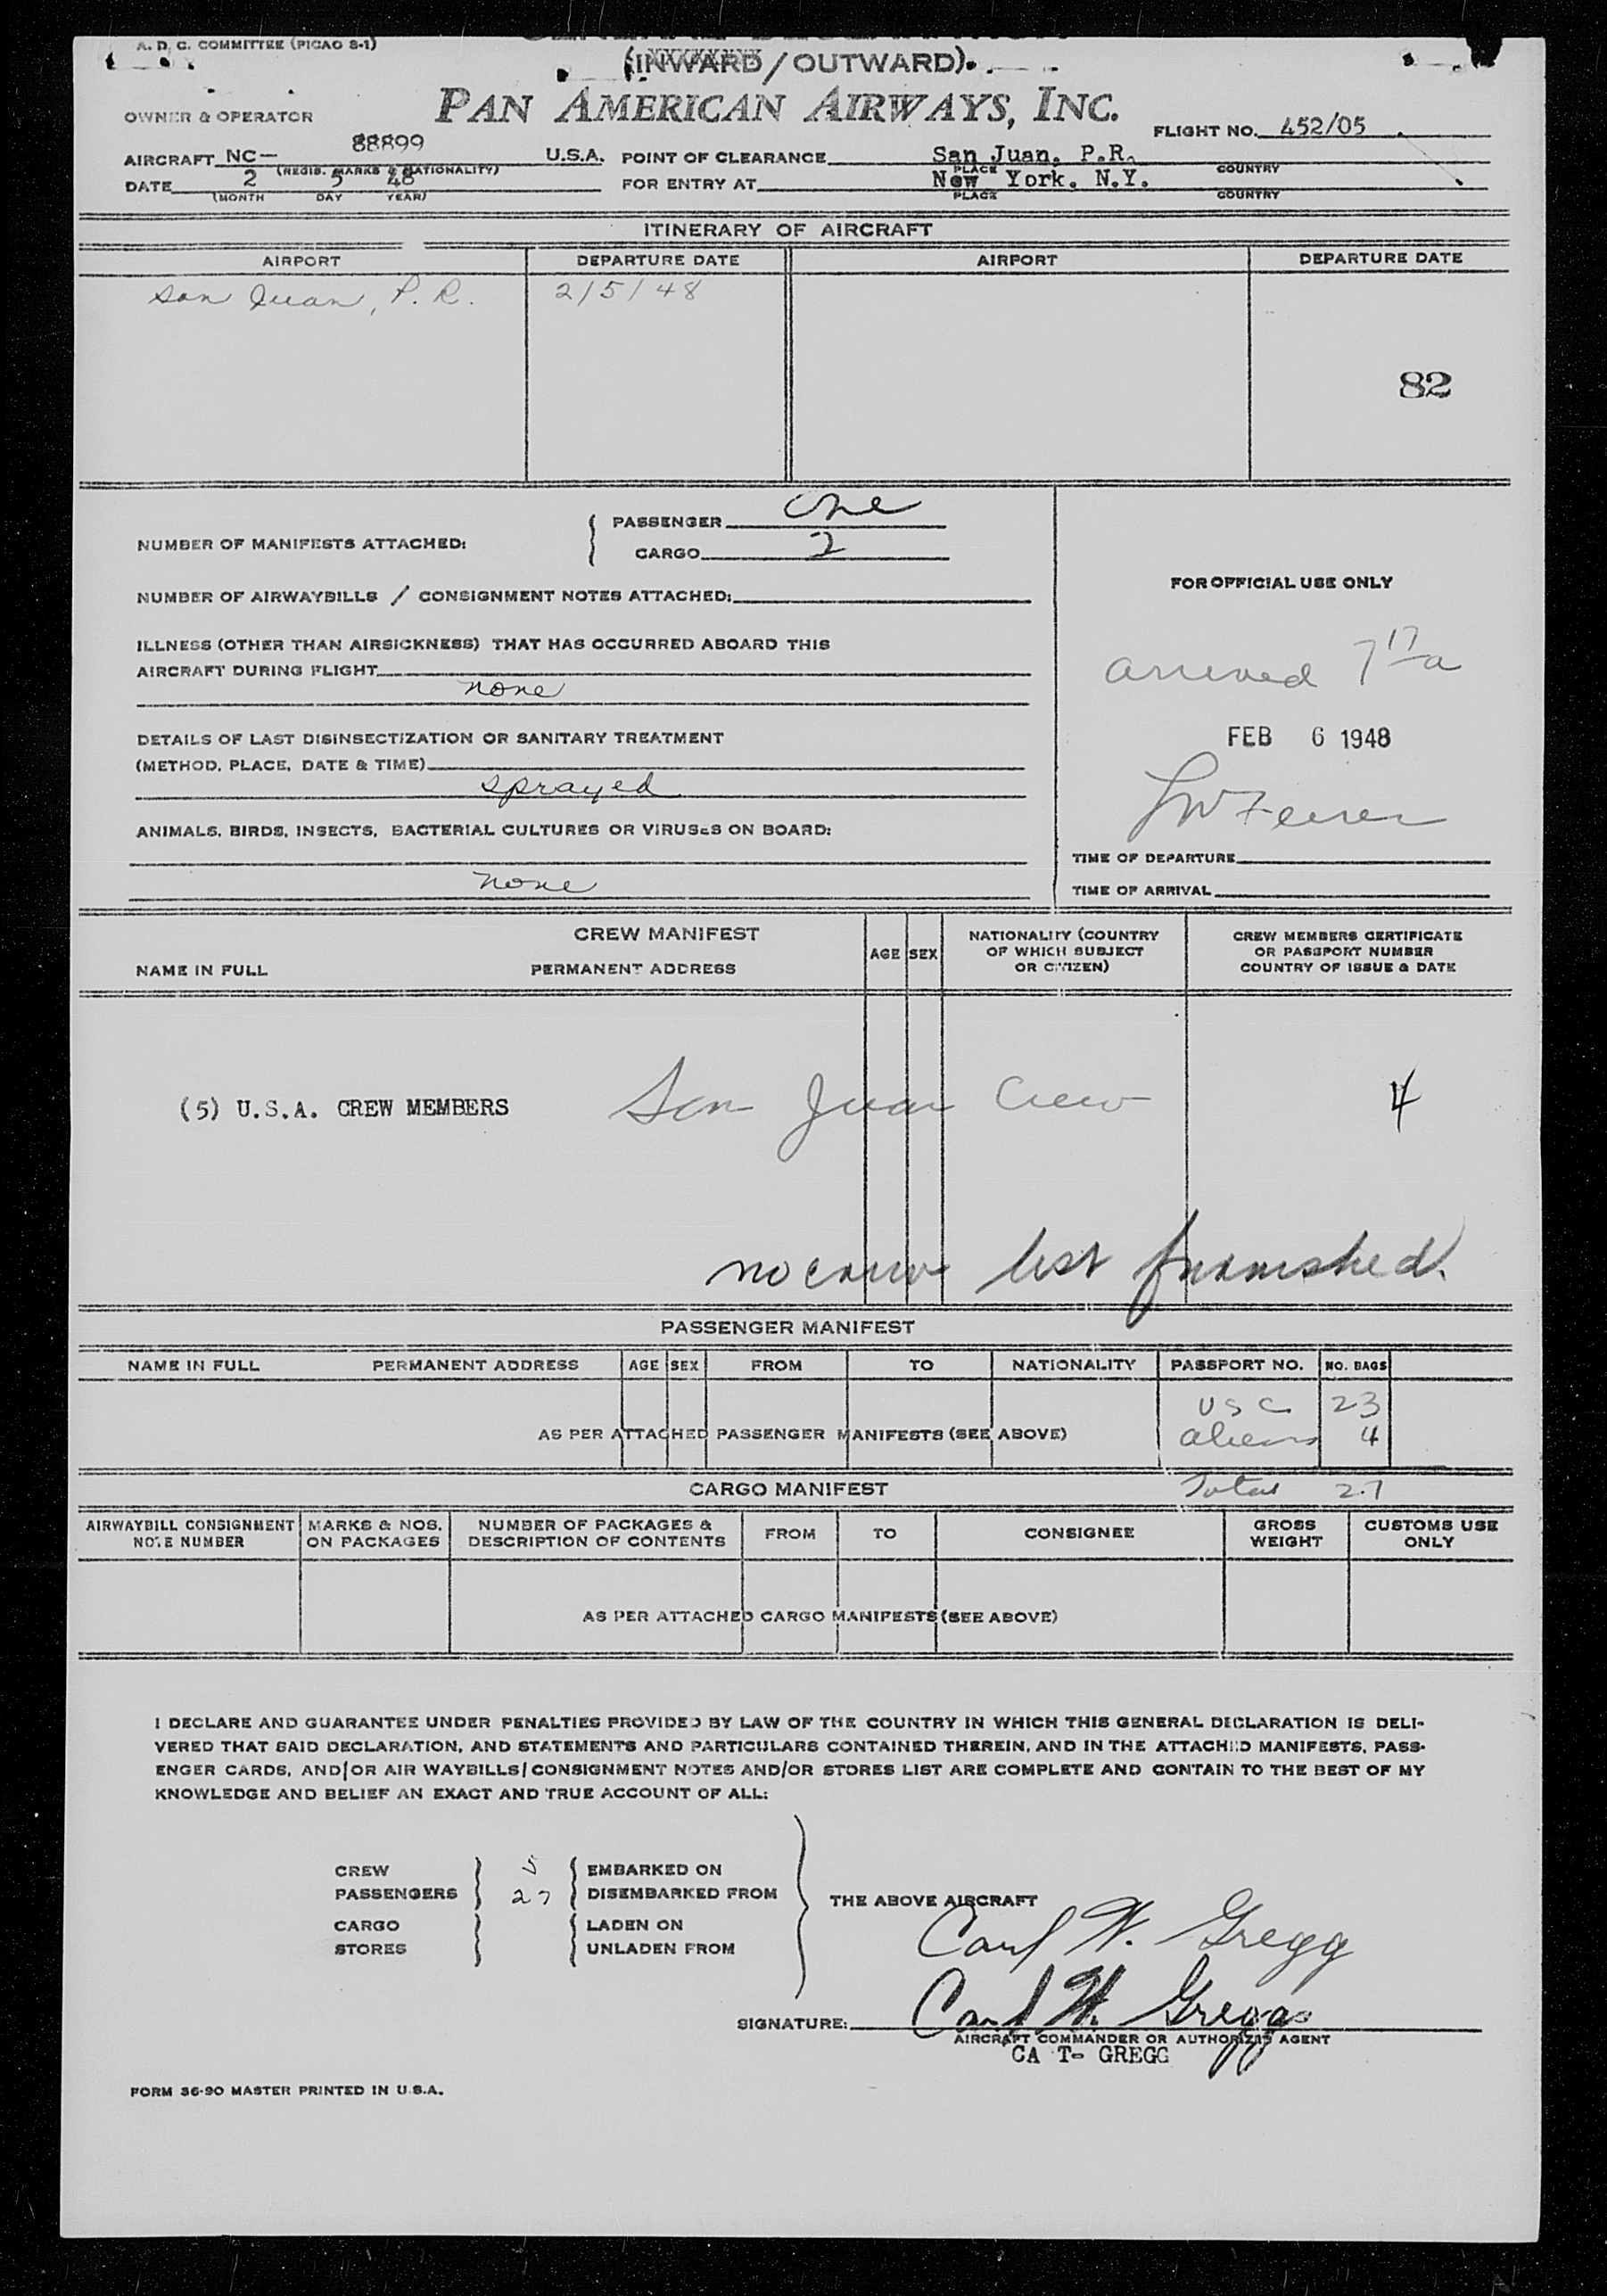 A. D. C. COMMITTEE (PICAO S-1)
(INWARD/OUTWARD)
PAN AMERICAN AIRWAYS, INC.
OWNER & OPERATOR
FLIGHT NO. 452/05
AIRCRAFT NC- 88899 U.S.A. POINT OF CLEARANCE San Juan, P.R.
(REGIS. MARKS & NATIONALITY) PLACE COUNTRY
DATE 2 5 48 FOR ENTRY AT New York. N.Y.
(MONTH DAY YEAR) PLACE COUNTRY
ITINERARY OF AIRCRAFT
AIRPORT DEPARTURE DATE AIRPORT DEPARTURE DATE
San Juan, P.R. 2/5/48
82
NUMBER OF MANIFESTS ATTACHED: { PASSENGER One
CARGO 2
FOR OFFICIAL USE ONLY
NUMBER OF AIRWAYBILLS / CONSIGNMENT NOTES ATTACHED:
ILLNESS (OTHER THAN AIRSICKNESS) THAT HAS OCCURRED ABOARD THIS
AIRCRAFT DURING FLIGHT
none
arrived 7 17 a
DETAILS OF LAST DISINSECTIZATION OR SANITARY TREATMENT
(METHOD, PLACE, DATE & TIME)
sprayed
FEB 6 1948
ANIMALS, BIRDS, INSECTS, BACTERIAL CULTURES OR VIRUSES ON BOARD:
none
TIME OF DEPARTURE
TIME OF ARRIVAL
CREW MANIFEST
NAME IN FULL PERMANENT ADDRESS AGE SEX NATIONALITY (COUNTRY OF WHICH SUBJECT OR CITIZEN) CREW MEMBERS CERTIFICATE OR PASSPORT NUMBER COUNTRY OF ISSUE & DATE
(5) U.S.A. CREW MEMBERS San Juan Crew 4
no crew list furnished.
PASSENGER MANIFEST
NAME IN FULL PERMANENT ADDRESS AGE SEX FROM TO NATIONALITY PASSPORT NO. NO. BAGS
USC 23
AS PER ATTACHED PASSENGER MANIFESTS (SEE ABOVE) aliens 4
CARGO MANIFEST Total 27
AIRWAYBILL CONSIGNMENT NOTE NUMBER MARKS & NOS. ON PACKAGES NUMBER OF PACKAGES & DESCRIPTION OF CONTENTS FROM TO CONSIGNEE GROSS WEIGHT CUSTOMS USE ONLY
AS PER ATTACHED CARGO MANIFESTS (SEE ABOVE)
I DECLARE AND GUARANTEE UNDER PENALTIES PROVIDED BY LAW OF THE COUNTRY IN WHICH THIS GENERAL DECLARATION IS DELI-
VERED THAT SAID DECLARATION, AND STATEMENTS AND PARTICULARS CONTAINED THEREIN, AND IN THE ATTACHED MANIFESTS, PASS-
ENGER CARDS, AND/OR AIR WAYBILLS/CONSIGNMENT NOTES AND/OR STORES LIST ARE COMPLETE AND CONTAIN TO THE BEST OF MY
KNOWLEDGE AND BELIEF AN EXACT AND TRUE ACCOUNT OF ALL:
CREW } 5 { EMBARKED ON
PASSENGERS } 27 { DISEMBARKED FROM
THE ABOVE AIRCRAFT
CARGO } { LADEN ON
STORES } { UNLADEN FROM
Carl W. Gregg
SIGNATURE: Carl W. Gregg
AIRCRAFT COMMANDER OR AUTHORIZED AGENT
CA T- GREGG
FORM 36-90 MASTER PRINTED IN U.S.A.